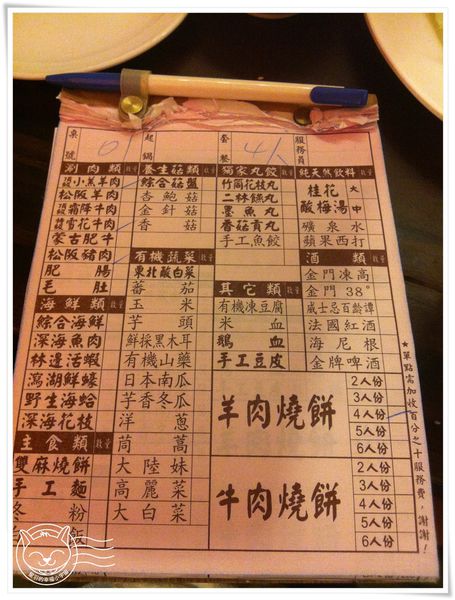 桌號 01 起鍋 套餐 4人 服務員
涮肉類 數量 養生菇類 數量 獨家丸餃 數量 純天然飲料 數量
小羔羊肉 綜合菇盤 竹筒花枝丸 桂花酸梅湯 大 中
松阪羊肉 杏鮑菇 二林貢丸
霜降牛肉 金針菇 墨魚丸 礦泉水
雪花牛肉 香菇 香菇貢丸 蘋果西打
蒙古肥牛 手工魚餃 酒類 數量
松阪豬肉 有機蔬菜 數量 金門凍高
肥腸 東北酸白菜 其它類 數量 金門38°
毛肚 蕃茄 有機凍豆腐 威士忌百齡譚
海鮮類 數量 玉米 米血 法國紅酒
綜合海鮮 芋頭 鵝血 海尼根
深海魚肉 鮮採黑木耳 手工豆皮 金牌啤酒
林邊活蝦 有機山藥
瀉湖鮮蠔 日本南瓜
野生海蛤 芋香冬瓜
深海花枝 洋蔥
主食類 數量 茼蒿
雙麻燒餅 大陸妹
手工麵 高麗菜
冬粉 大白菜
飯
羊肉燒餅 2人份
3人份
4人份
5人份
6人份
牛肉燒餅 2人份
3人份
4人份
5人份
6人份
★單點需加收百分之十服務費,謝謝!